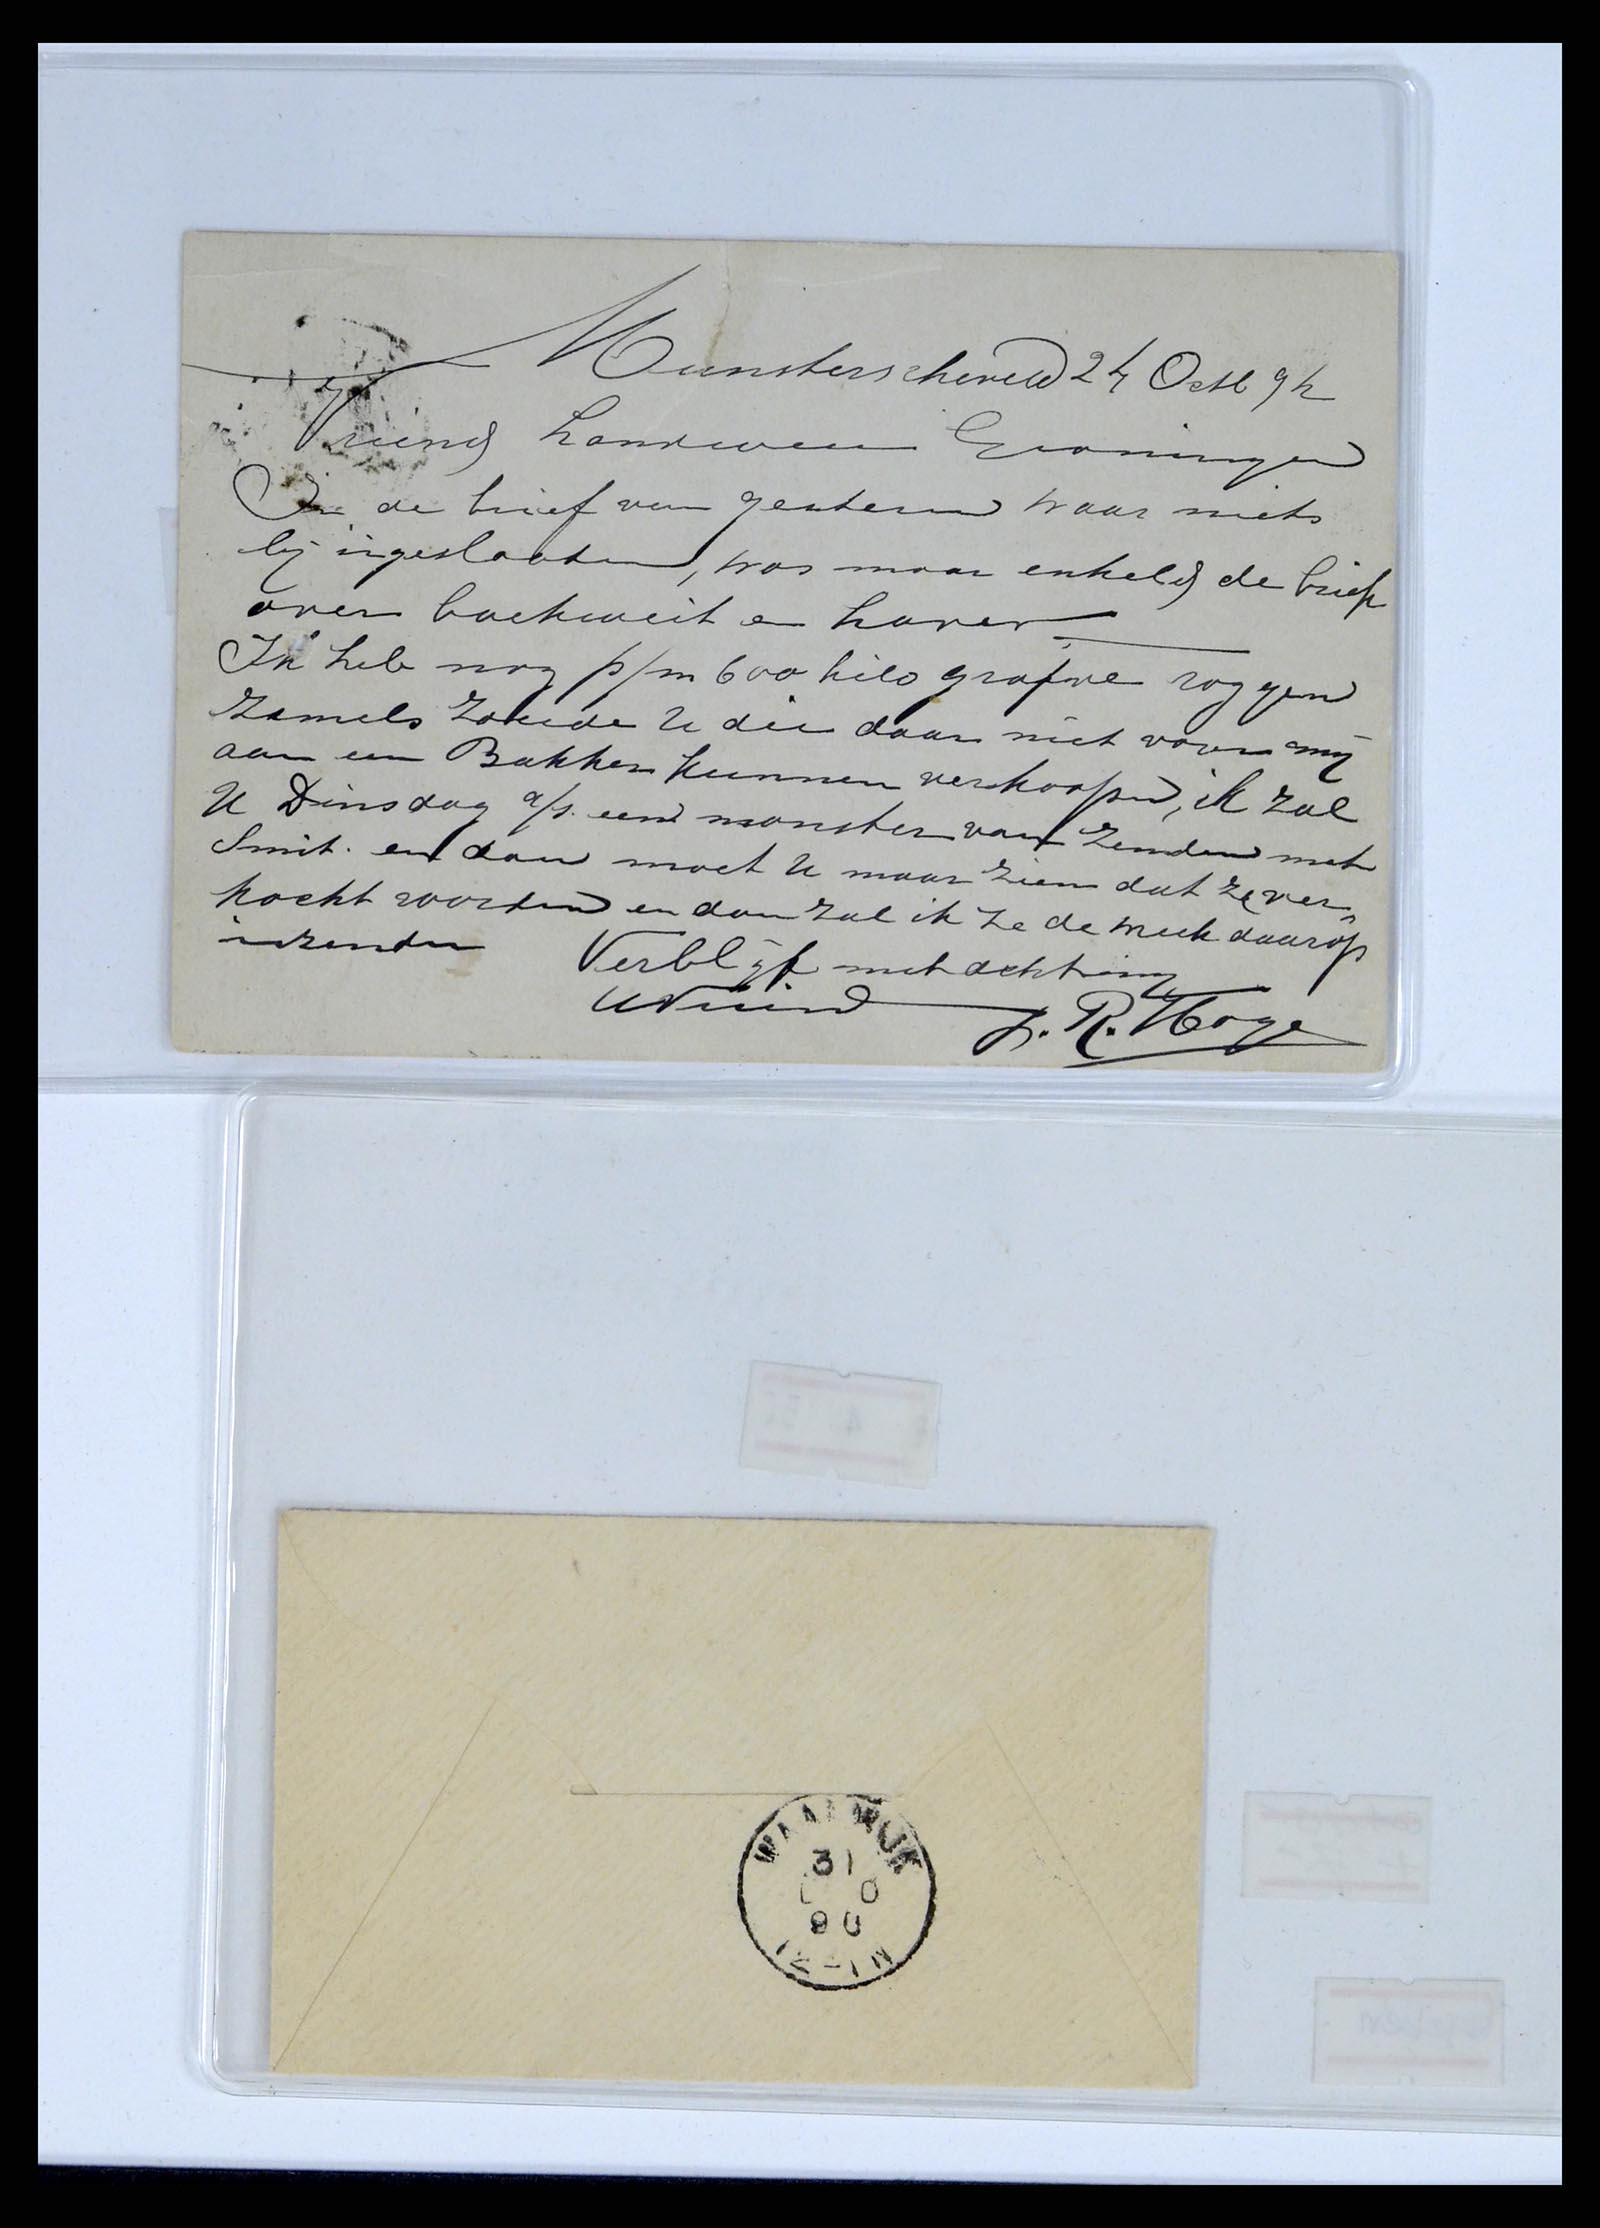 Munsterscheveld 24 Octb 92
Vriend Groningen
In de brief van gesteren waar niets
bij ingeslooten, was maar enkeld de brief
over boekweit en haver
Ik heb nog p/m 600 kilo grofve roggen
Zemels zoude U die daar niet voor mij
aan een Bakker kunnen verkoopen, ik zal
U Dinsdag a/s. een monster van zenden met
Smit. en dan moet U maar zien dat ze ver„
kocht worden en dan zal ik ze de week daarop
inzenden Verblijf met achting
U Vriend
WAALWIJK
31
90